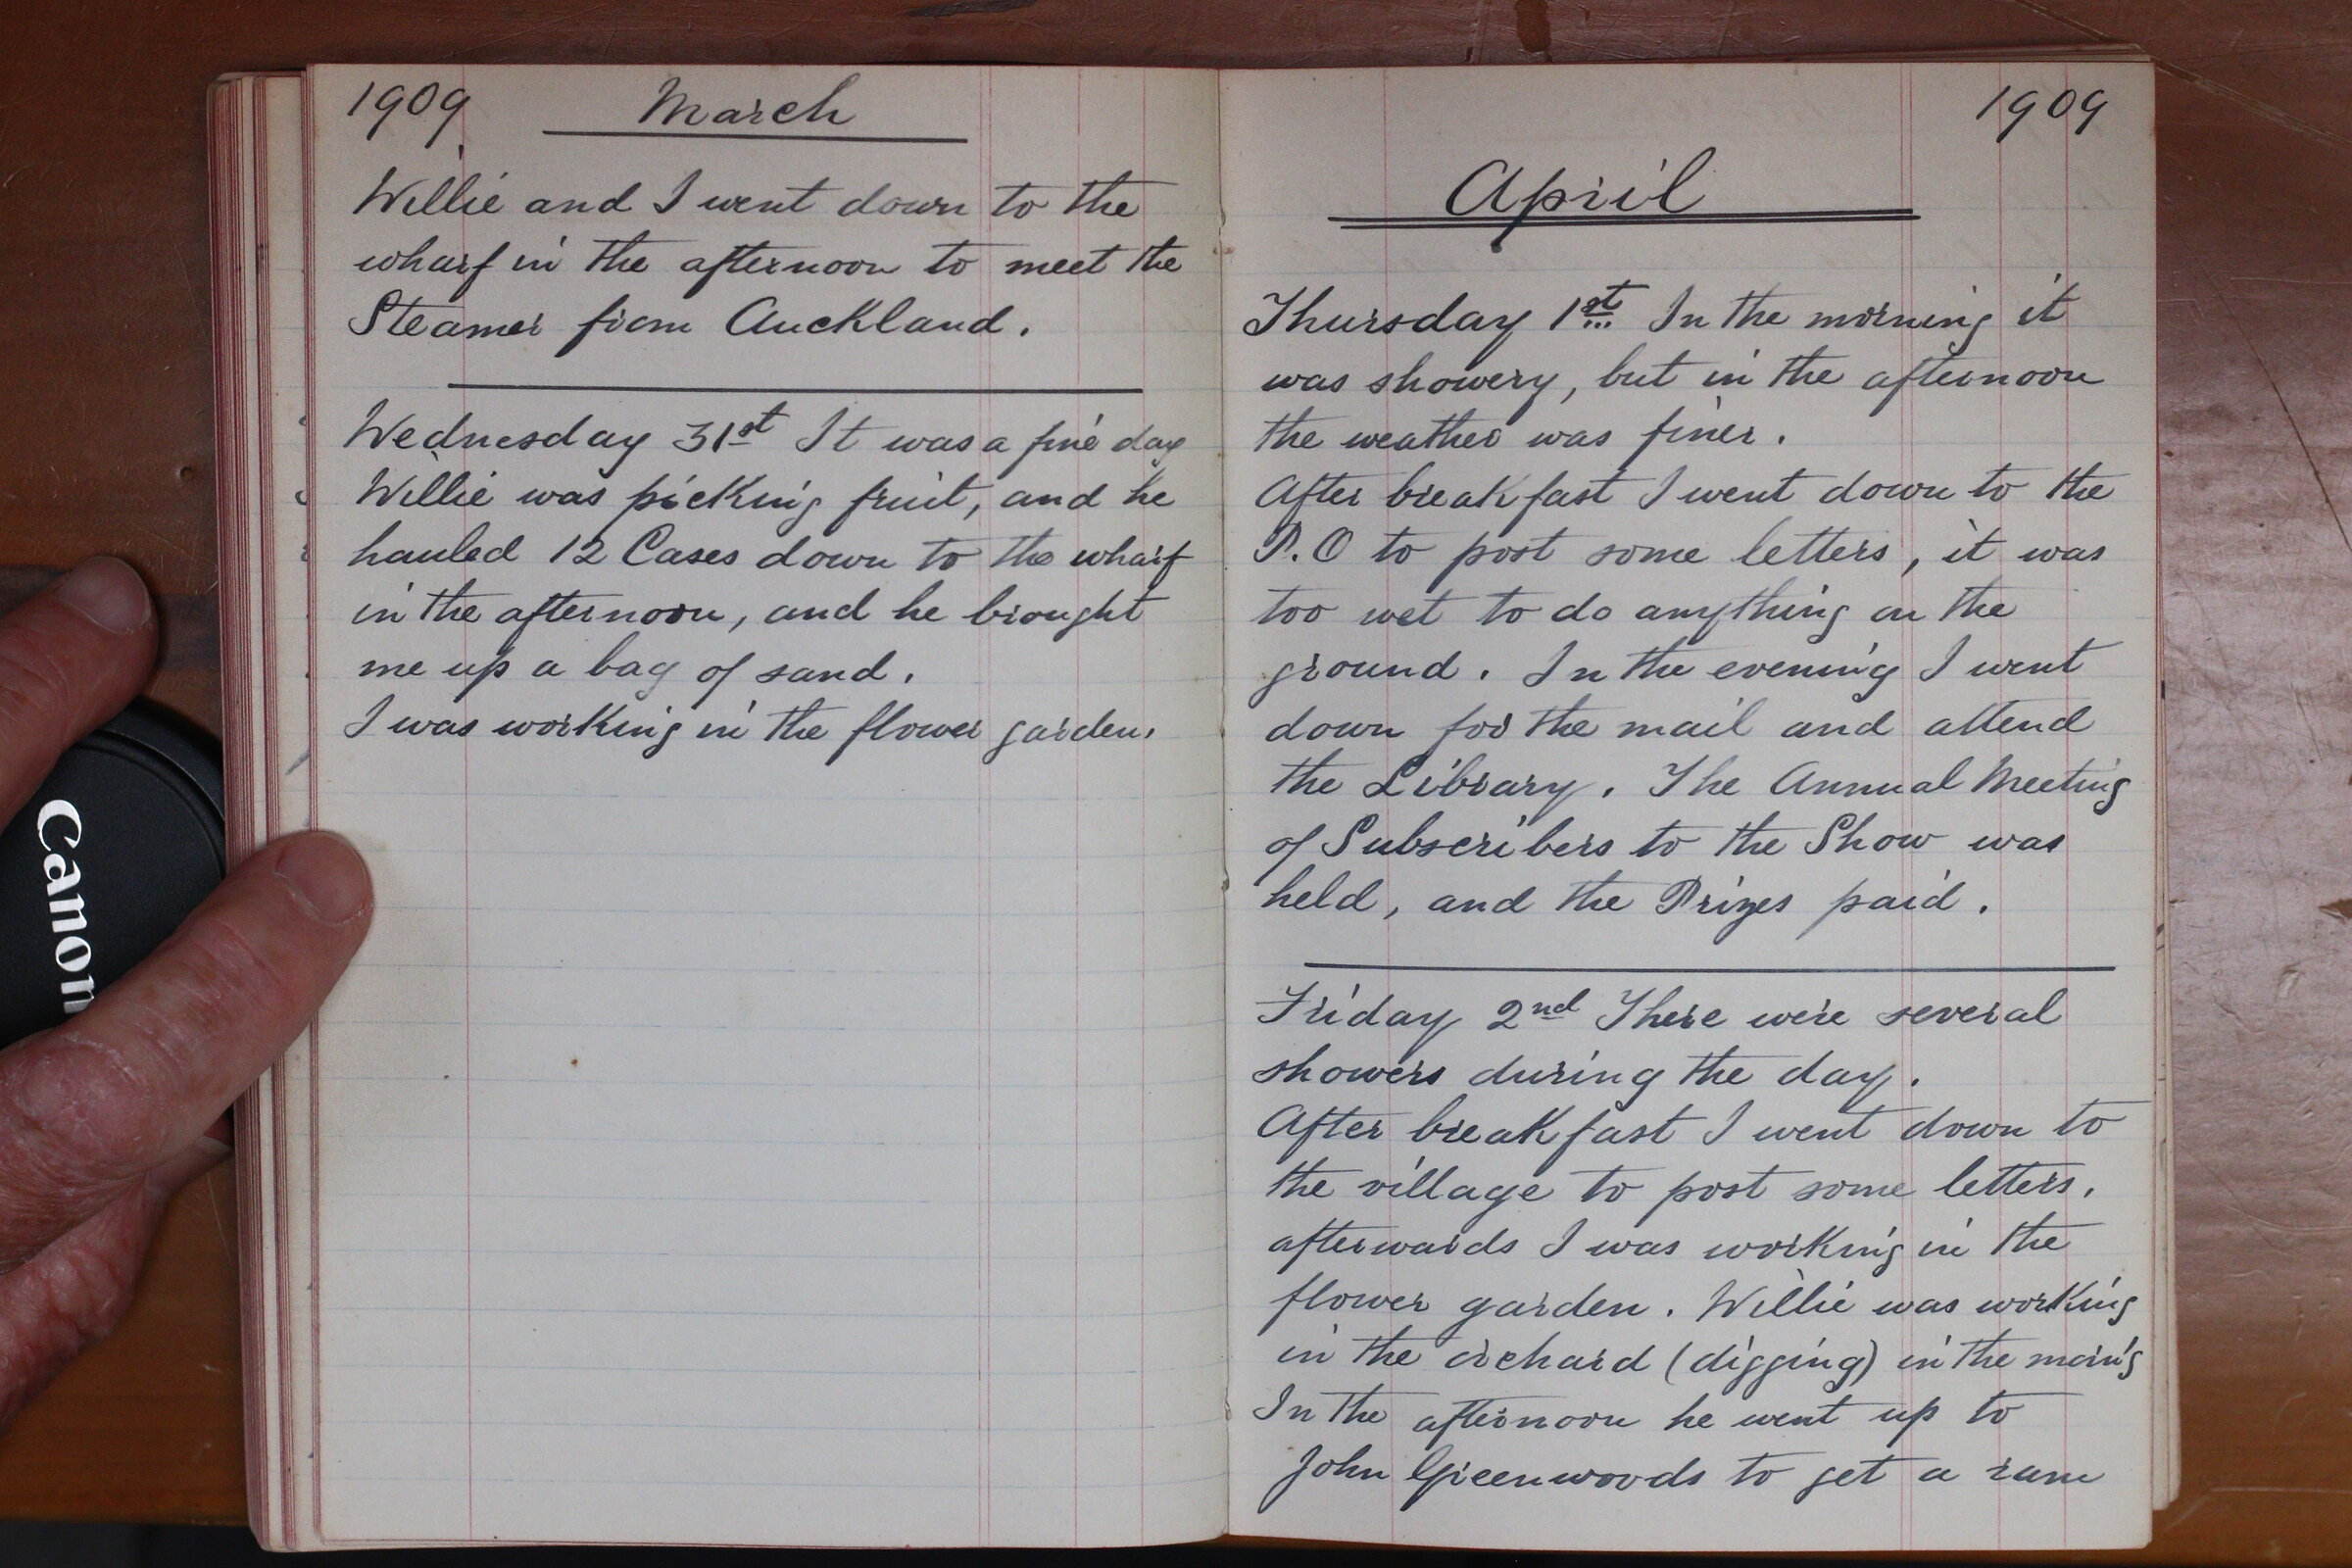 1909 March
Willie and I went down to the
wharf in the afternoon to meet the
Steamer from Auckland.
Wednesday 31st It was a fine day
Willie was picking fruit, and he
hauled 12 Cases down to the wharf
in the afternoon, and he brought
me up a bag of sand.
I was working in the flower garden.
1909
April
Thursday 1st In the morning it
was showery, but in the afternoon
the weather was finer.
After breakfast I went down to the
P.O to post some letters, it was
too wet to do anything on the
ground. In the evening I went
down for the mail and attend
the Library. The Annual Meeting
of Subscribers to the Show was
held, and the Prizes paid.
Friday 2nd There were several
showers during the day.
After breakfast I went down to
the village to post some letters,
afterwards I was working in the
flower garden. Willie was working
in the orchard (digging) in the morn'g
In the afternoon he went up to
John Greenwoods to get a ram
Canon